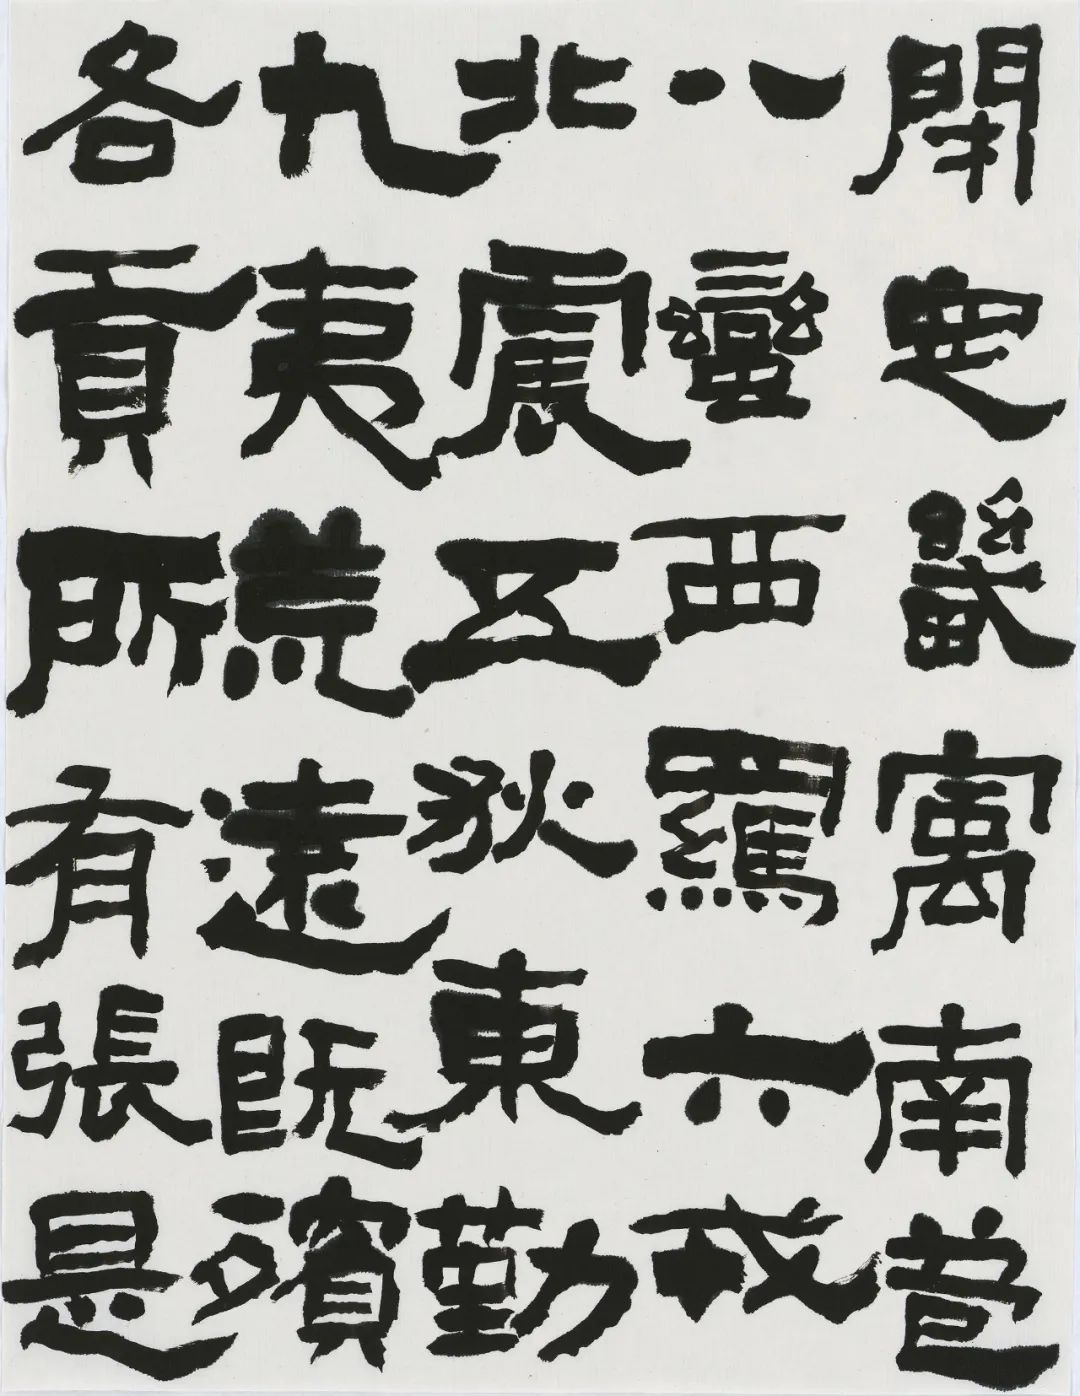 開定畿寓南苞
八蠻西羈六戎
北震五狄東勤
九夷荒遠既殯
各貢所有張是